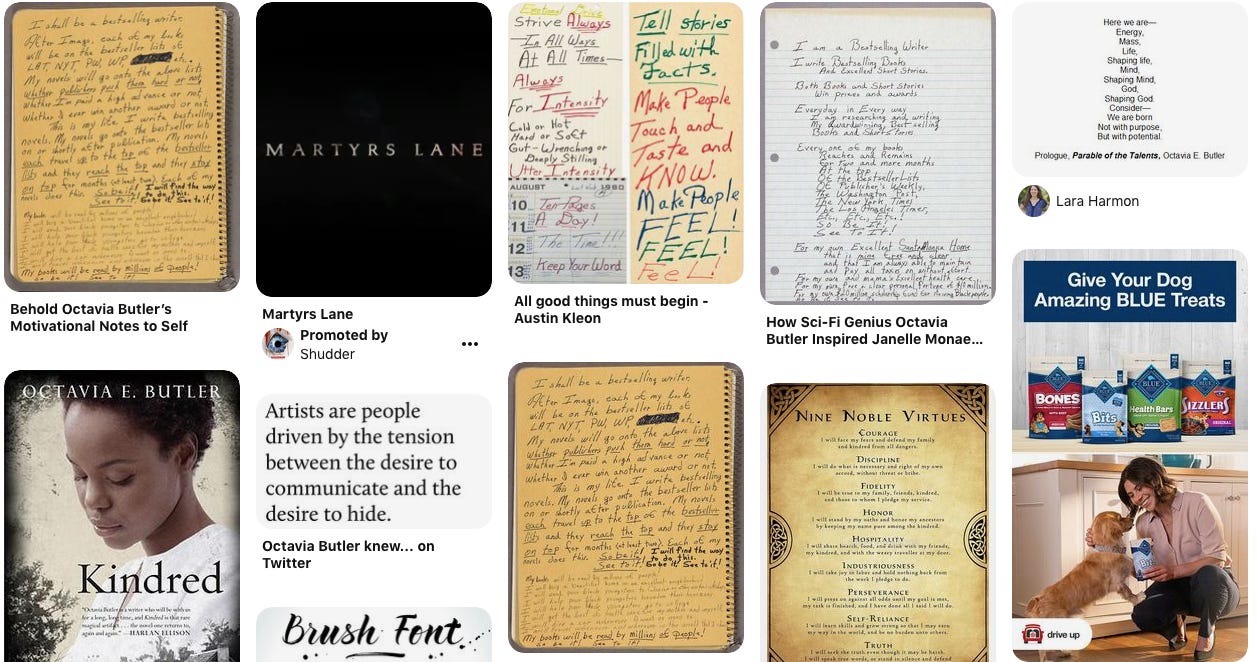 I shall be a bestselling writer.
After Imago, each of my books
will be on the bestseller lists of
LAT, NYT, PW, WP etc.
My novels will go onto the above lists
whether publishers push them hard or not,
whether I'm paid a high advance or not,
whether I ever win another award or not.
This is my life. I write bestselling
novels. My novels go onto the bestseller lists
on or shortly after publication. My novels
each travel up to the top of the bestseller
lists and they reach the top and they stay
on top for months (at least two). Each of my
novels does this. So be it! I will find the way
to do this.
See to it! So be it! See to it!
My books will be read by millions of people!
My books will be read by millions of people!
Behold Octavia Butler's
Motivational Notes to Self
OCTAVIA E. BUTLER
Kindred
"Octavia Butler is a writer who will be with us
for a long, long time, and Kindred is that rare
magical artifact . . . the novel one returns to,
again and again." —HARLAN ELLISON
MARTYRS LANE
Martyrs Lane
Promoted by
Shudder
Artists are people
driven by the tension
between the desire to
communicate and the
desire to hide.
Octavia Butler knew... on
Twitter
Brush Font
Strive Always
In All Ways
At All Times
Always
For Intensity
Cold or Hot
Hard or Soft
Gut-Wrenching or
Deeply Stilling
Utter Intensity
AUGUST 1980
10 Ten Pages
11 A Day!
12 The Time!!!
13 Keep Your Word
Tell stories
Filled with
Facts.
Make People
Touch and
Taste and
KNOW.
Make People
FEEL!
FEEL!
FEEL!
All good things must begin -
Austin Kleon
I shall be a bestselling writer.
After Imago, each of my books
will be on the bestseller lists of
LAT, NYT, PW, WP etc.
My novels will go onto the above lists
whether publishers push them hard or not,
whether I'm paid a high advance or not,
whether I ever win another award or not.
This is my life. I write bestselling
novels. My novels go onto the bestseller lists
on or shortly after publication. My novels
each travel up to the top of the bestseller
lists and they reach the top and they stay
on top for months (at least two). Each of my
novels does this. So be it! I will find the way
to do this.
See to it! So be it! See to it!
My books will be read by millions of people!
My books will be read by millions of people!
I am a Bestselling Writer
I write Bestselling Books
And Excellent Short Stories.
Both Books and Short Stories
win prizes and awards
Everyday in Every way
I am researching and writing
My awardwinning, Best selling
Books and Short Stories
Every one of my books
Reaches and Remains
For two and more months
At the top
Of the Bestseller Lists
Of Publisher's Weekly,
The Washington Post,
The New York Times,
The Los Angeles Times,
Etc., Etc., Etc.!
So Be It!
See To It!
For my own Excellent Santa Monica Home
that is mine free and clear,
and that I am always able to maintain
and Pay all taxes on without effort
How Sci-Fi Genius Octavia
Butler Inspired Janelle Monae...
NINE NOBLE VIRTUES
COURAGE
I will face my fears and defend my family
and kindred from all dangers.
DISCIPLINE
I will do what is necessary and right of my own
accord, without threat or bribe.
FIDELITY
I will be true to my family, friends, kindred,
and those to whom I pledge my service.
HONOR
I will stand by my oaths and honor my ancestors
by keeping my name pure among the kindred.
HOSPITALITY
I will share hearth, food, and drink with my friends,
my kindred, and with the weary traveller at my door.
INDUSTRIOUSNESS
I will take joy in labor and hold nothing back from
the work I pledge to do.
PERSEVERANCE
I will press on against all odds until my goal is met,
my task is finished, and I have done all I said I will do.
SELF-RELIANCE
I will learn skills and grow strong so that I may earn
my way in the world, and be no burden unto others.
TRUTH
I will seek the truth even though it may be harsh.
Here we are—
Energy,
Mass,
Life,
Shaping life,
Mind,
Shaping Mind,
God,
Shaping God.
Consider—
We are born
Not with purpose,
But with potential.
Prologue, Parable of the Talents, Octavia E. Butler
Lara Harmon
Give Your Dog
Amazing BLUE Treats
BLUE
BONES
Bits
Health Bars
SIZZLERS
ORIGINAL
Bits
drive up